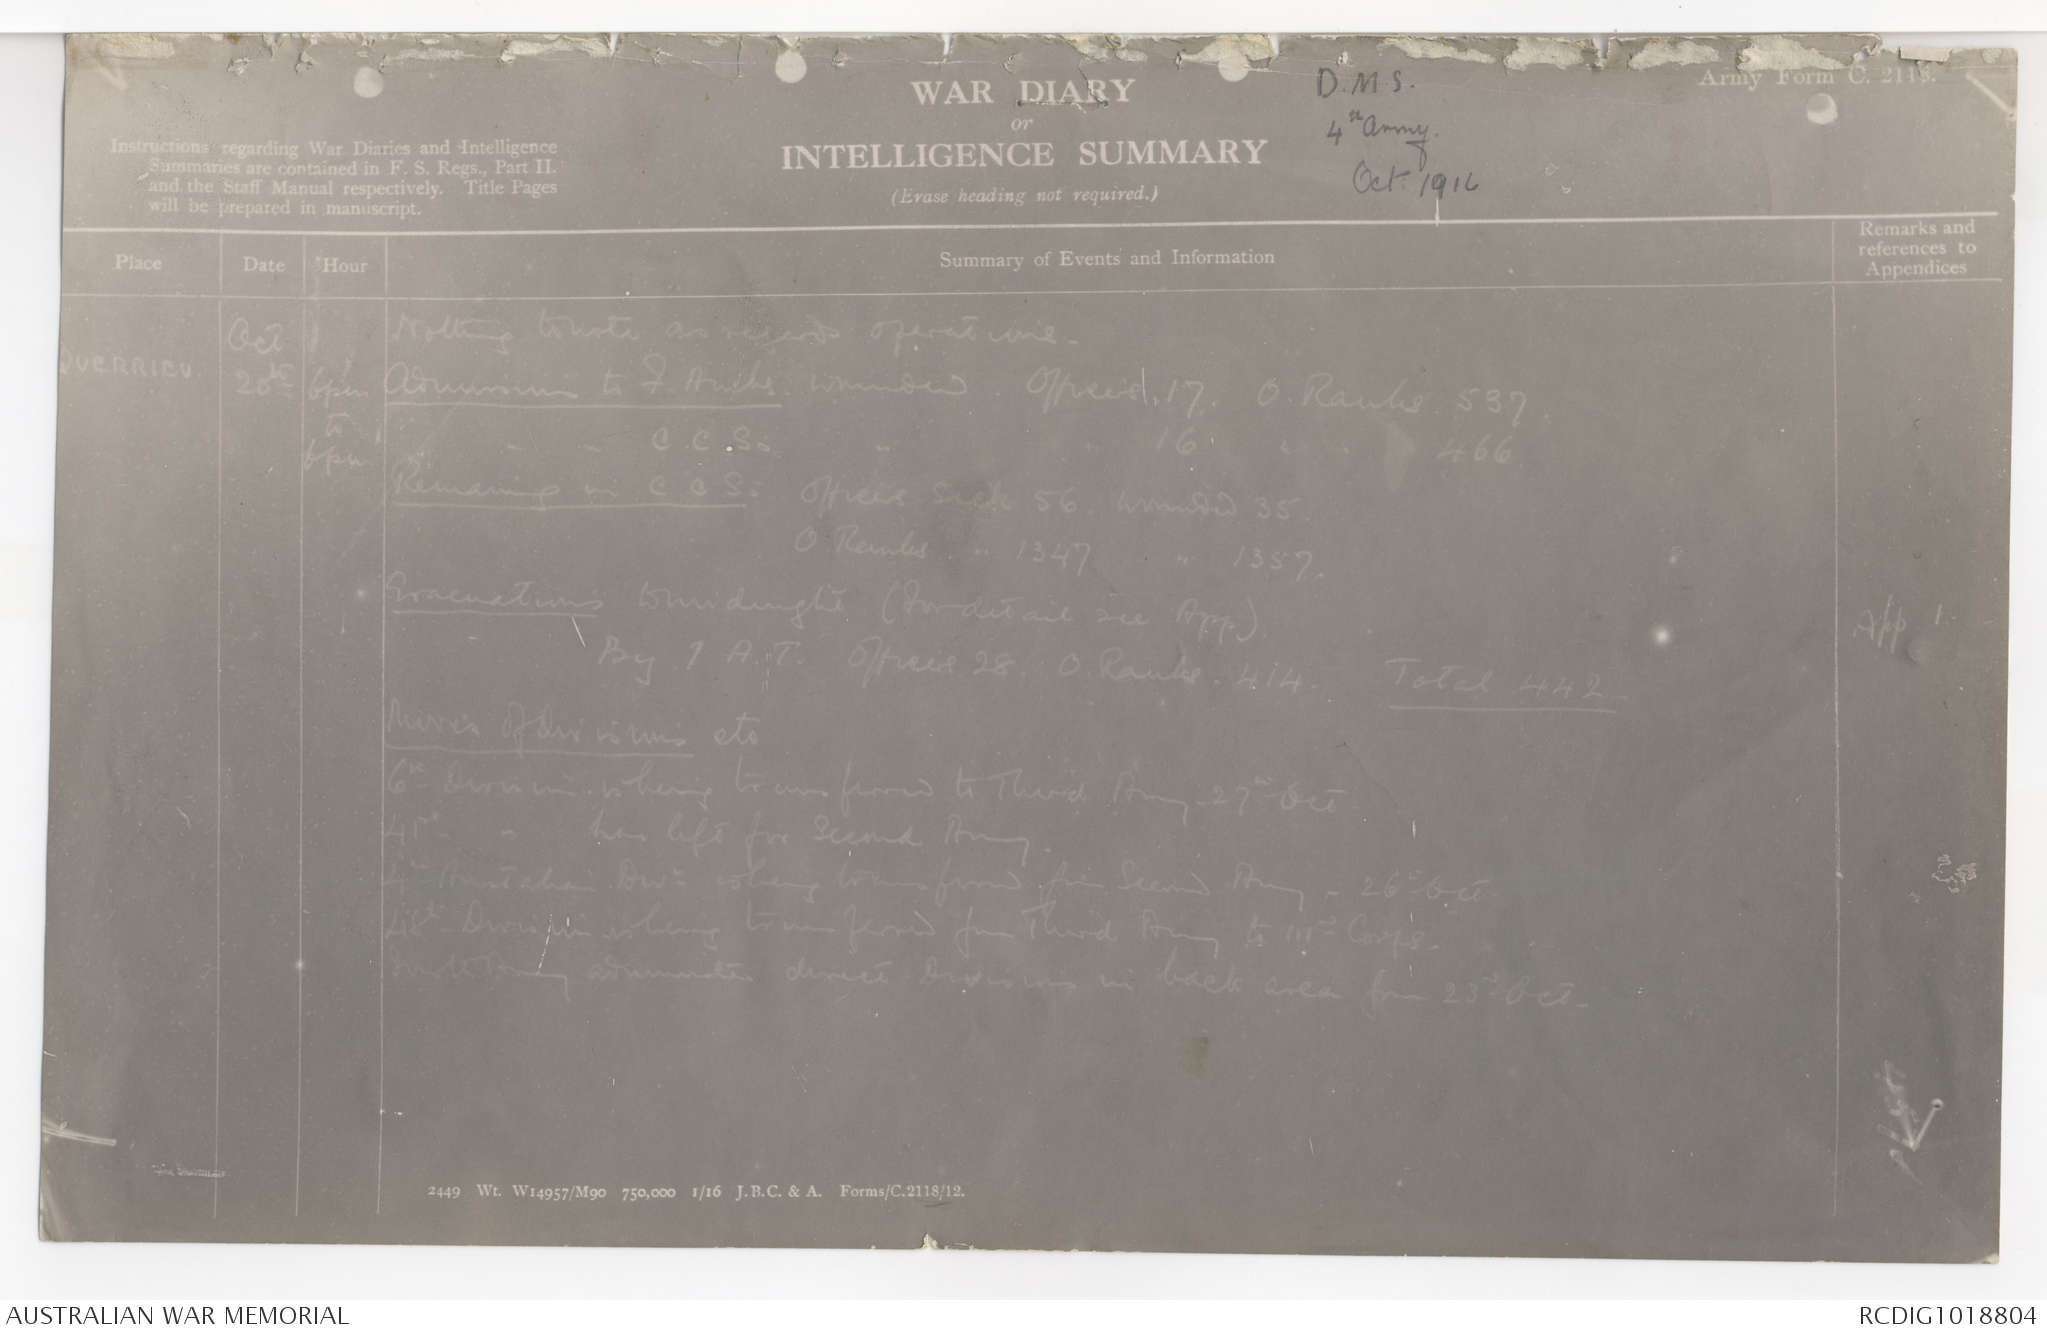 WAR DIARY
or
INTELLIGENCE SUMMARY
(Erase heading not required.)
D.M.S.
4th Army.
Oct. 1916
Army Form C. 2118.
Instructions regarding War Diaries and Intelligence
Summaries are contained in F. S. Regs., Part II.
and the Staff Manual respectively. Title Pages
will be prepared in manuscript.
Place
Date
Hour
Summary of Events and Information
Remarks and
references to
Appendices
QUERRIEU.
Oct
6pm
to
6pm
Nothing to note as regards operations.
Admissions to F. Ambs. wounded. Officers 17. O. Ranks 537.
" " " C.C.S: " " 16 " " 466
Remaining in C C S: Officers Sick 56. wounded 35.
O. Ranks " 1347 " 1357.
Evacuations to midnight (For detail see App)
App 1.
By 1 A.T. Officers 28. O. Ranks. 414. Total 442
Moves of Divisions etc
6th Division is being transferred to Third Army 27th Oct.
" has left for Second Army.
4th Australian Divn is being transferred from Second Army - 26th Oct
48th Division is being transferred from Third Army to IIIrd Corps.
Fourth Army administer direct Divisions in back area from 23rd Oct.
2449 Wt. W14957/M90 750,000 1/16 J.B.C. & A. Forms/C.2118/12.
AUSTRALIAN WAR MEMORIAL
RCDIG1018804